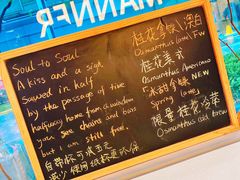 MANNER
Soul to Soul
A kiss and a sigh
Sawed in half
by the passage of time
halfway home from a window
you see chains and bars
but I am still free.
自带杯可减五元
减少使用纸杯更环保
桂花拿铁\澳白
Osmanthus latte\F.w
桂花美式
Osmanthus Americano
冰甜拿铁 NEW
Spring latte
限量 桂花冷萃
Osmanthus cold brew